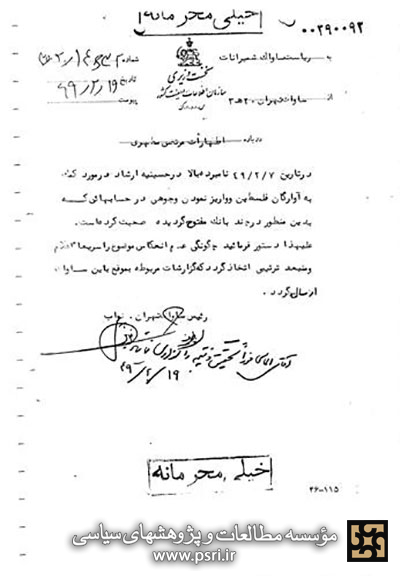 خیلی محرمانه
۰۰۲۹۰۰۹۲
نخست وزیری
سازمان اطلاعات و امنیت کشور
به ریاست ساواک شمیرانات
از ساواک تهران ۲۰ ه ۳
شماره
تاریخ ۴۹/۲/۱۹
پیوست
درباره اظهارات مرتضی مطهری
در تاریخ ۴۹/۲/۷ نامبرده بالا در حسینیه ارشاد در مورد کمک
به آوارگان فلسطین و واریز نمودن وجوهی در حسابهائی که
بدین منظور در چند بانک مفتوح گردیده صحبت کرده است.
علیهذا دستور فرمائید چگونگی عدم انعکاس موضوع را سریعا اعلام
ومنبعد ترتیبی اتخاذ گردد که گزارشات مربوطه بموقع باین ساواک
ارسال گردد.
رئیس ساواک تهران. نواب
۴۹/۲/۱۹
خیلی محرمانه
۲۶-۱۱۵
مؤسسه مطالعات و پژوهشهای سیاسی
www.psri.ir